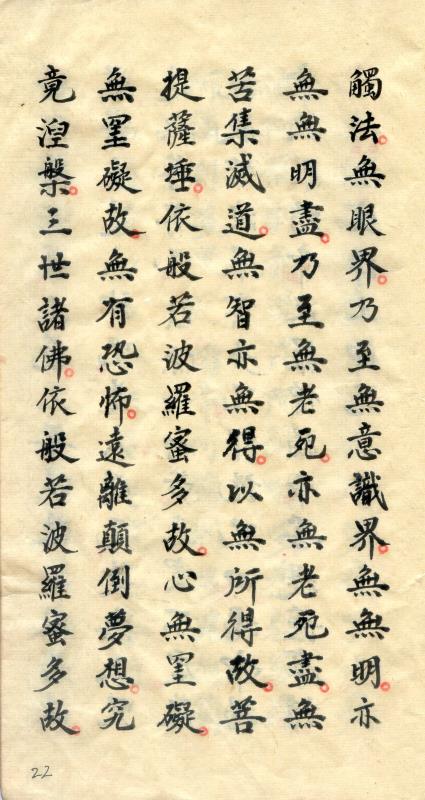 觸法。無眼界。乃至無意識界。無無明。亦
無無明盡。乃至無老死。亦無老死盡。無
苦集滅道。無智亦無得。以無所得故。菩
提薩埵。依般若波羅蜜多故。心無罣礙。
無罣礙故。無有恐怖。遠離顛倒夢想。究
竟涅槃。三世諸佛。依般若波羅蜜多故。
22